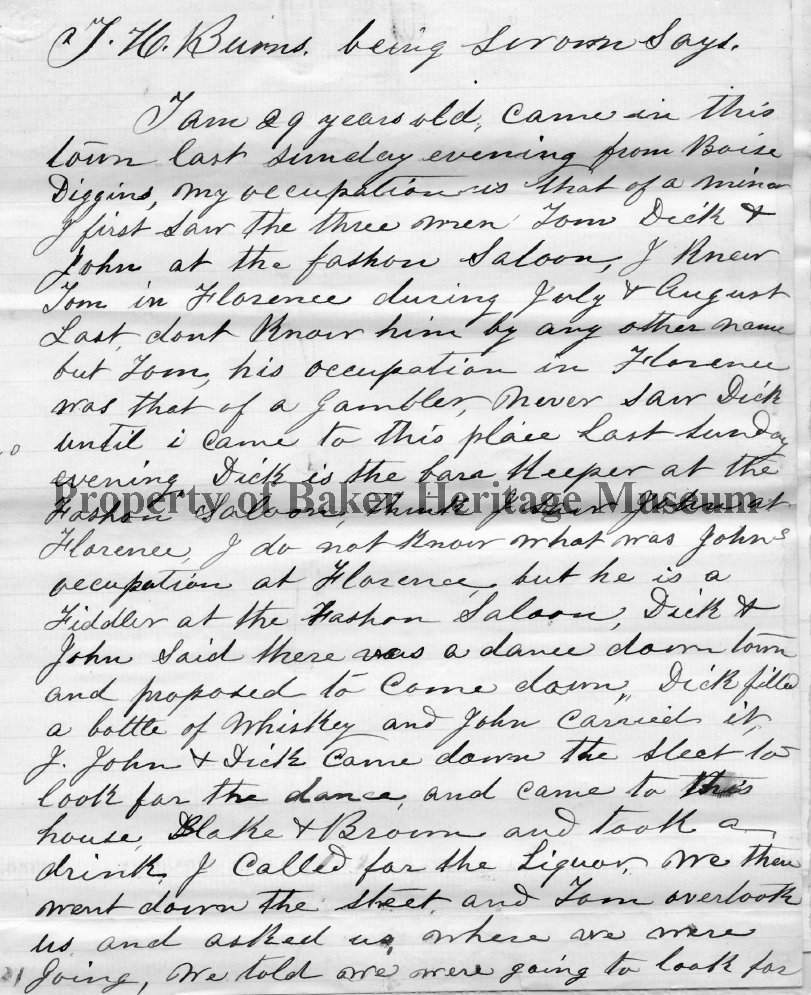 T. H. Burns. being sworn Says.
I am 29 years old, came in this
town last sunday evening from Boise
Diggins, my occupation is that of a mina
I first saw the three men Tom Dick &
John at the fashon Saloon, I Knew
Tom in Florence during July & August
Last, dont Know him by any other name
but Tom, his occupation in Florence
was that of a Gambler, never saw Dick
until i came to this place Last sunday
evening Dick is the bara Keeper at the
Property of Baker Heritage Museum
Fashon Saloon, think I saw John at
Florence, I do not know what was Johns
occupation at Florence, but he is a
Fiddler at the Fashon Saloon, Dick &
John said there was a dance down town
and proposed to come down, Dick filled
a bottle of Whiskey and John carried it,
I. John & Dick came down the steet to
look for the dance, and came to this
house, Blake & Brown and took a
drink, I called for the Liquor. we then
went down the steet, and Tom overtook
us and asked us, where we were
going, we told we were going to look for